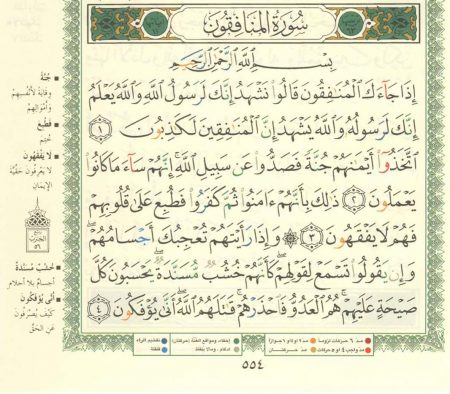 سُورَةُ المُنَافِقُونَ
بِسْمِ اللَّهِ الرَّحْمَٰنِ الرَّحِيمِ
إِذَا جَآءَكَ ٱلْمُنَٰفِقُونَ قَالُوا۟ نَشْهَدُ إِنَّكَ لَرَسُولُ ٱللَّهِ وَٱللَّهُ يَعْلَمُ
إِنَّكَ لَرَسُولُهُۥ وَٱللَّهُ يَشْهَدُ إِنَّ ٱلْمُنَٰفِقِينَ لَكَٰذِبُونَ ١
ٱتَّخَذُوٓا۟ أَيْمَٰنَهُمْ جُنَّةً فَصَدُّوا۟ عَن سَبِيلِ ٱللَّهِ ۚ إِنَّهُمْ سَآءَ مَا كَانُوا۟
يَعْمَلُونَ ٢ ذَٰلِكَ بِأَنَّهُمْ ءَامَنُوا۟ ثُمَّ كَفَرُوا۟ فَطُبِعَ عَلَىٰ قُلُوبِهِمْ
فَهُمْ لَا يَفْقَهُونَ ٣ ۞ وَإِذَا رَأَيْتَهُمْ تُعْجِبُكَ أَجْسَامُهُمْ ۖ
وَإِن يَقُولُوا۟ تَسْمَعْ لِقَوْلِهِمْ ۖ كَأَنَّهُمْ خُشُبٌ مُّسَنَّدَةٌ ۖ يَحْسَبُونَ كُلَّ
صَيْحَةٍ عَلَيْهِمْ ۚ هُمُ ٱلْعَدُوُّ فَٱحْذَرْهُمْ ۚ قَٰتَلَهُمُ ٱللَّهُ ۖ أَنَّىٰ يُؤْفَكُونَ ٤
▪ جُنَّةً
وِقَايَةً لأَنْفُسِهِمْ
وَأَمْوَالِهِمْ
▪ فَطُبِعَ
خُتِمَ
▪ لا يَفْقَهُونَ
لا يَعْرِفُونَ حَقِّيَّةَ
الإيمَانِ
الحزب
٥٦
▪ خُشُبٌ مُسَنَّدَةٌ
أجسامٌ بلا أحلام
▪ أَنَّى يُؤْفَكُونَ
كَيْفَ يُصْرَفُونَ
عَن الحَقِّ
مدّ ٦ حركات لزوماً مدّ ٢ أو ٤ أو ٦ جوازاً إخفاء، ومواقع الغُنَّة (حركتان) تفخيم الراء
مدّ واجب ٤ أو ٥ حركات مدّ حركتان إدغام، وما لا يُلفظ قلقلة
٥٥٤